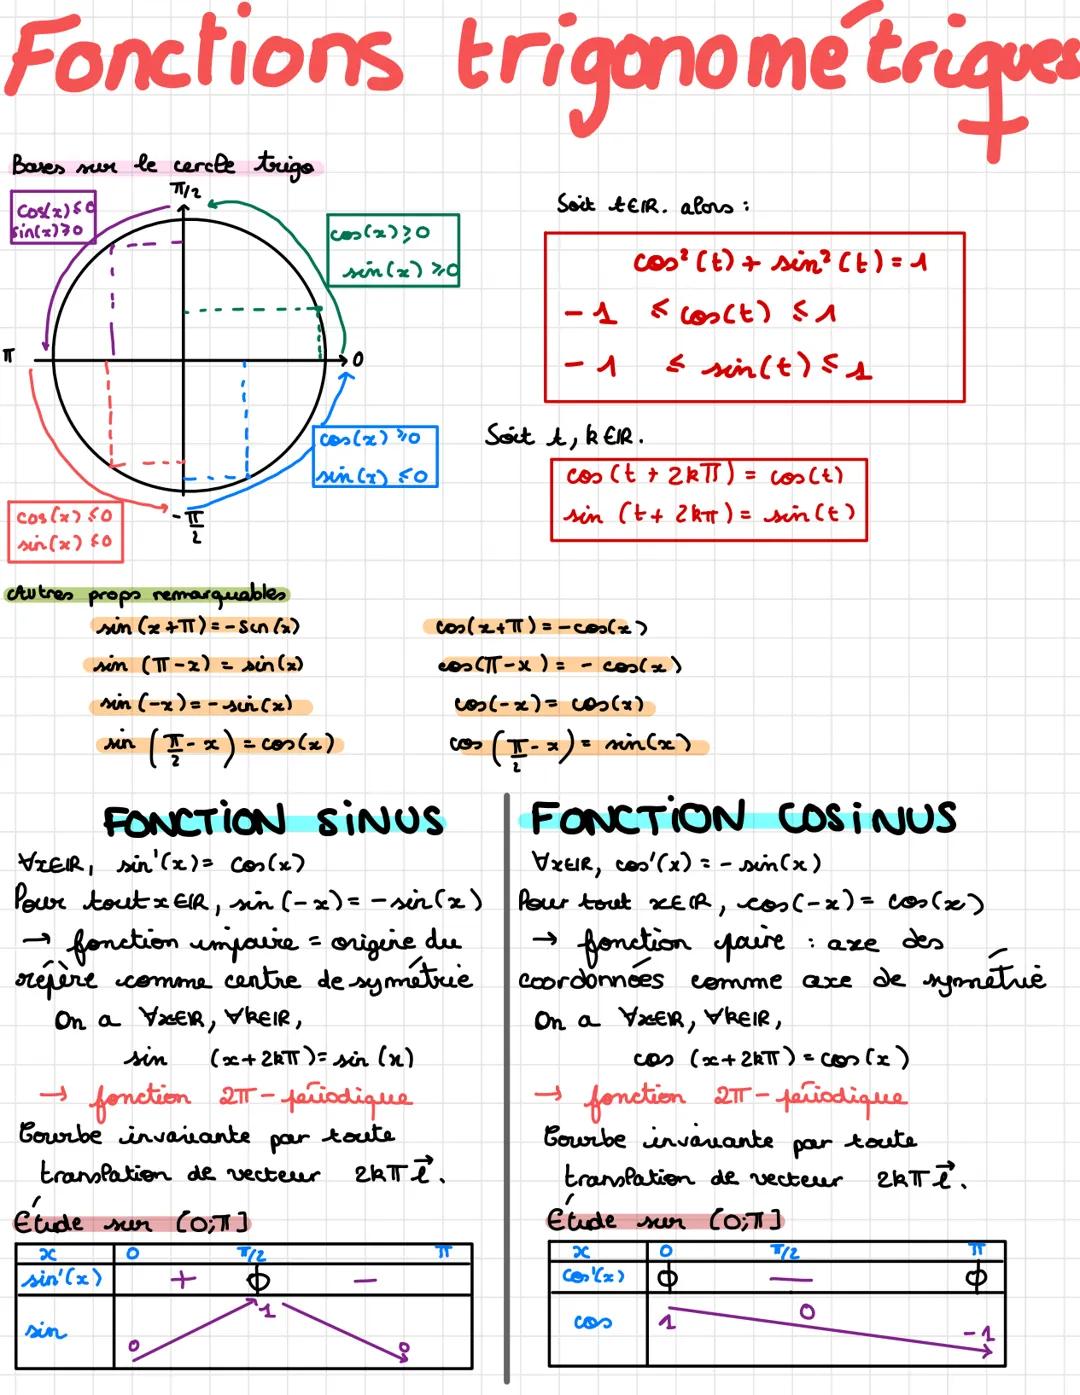 Fonctions trigonométriques
Bases sur le cercle trigo
π/2
cos(x)≤0
sin(x)≥0
cos(x)≥0
sin(x)≥0
π
0
cos(x)≥0
sin(x)≤0
cos(x)≤0
sin(x)≤0
-π/2
Soit t∈ℝ. alors :
cos²(t) + sin²(t) = 1
-1 ≤ cos(t) ≤ 1
-1 ≤ sin(t) ≤ 1
Soit t, k∈ℝ.
cos (t + 2kπ) = cos(t)
sin (t + 2kπ) = sin(t)
Autres props remarquables
sin(x+π) = -sin(x)
sin (π-x) = sin(x)
sin(-x) = -sin(x)
sin (π/2 - x) = cos(x)
cos(x+π) = -cos(x)
cos(π-x) = - cos(x)
cos(-x) = cos(x)
cos (π/2 - x) = sin(x)
FONCTION SINUS
∀x∈ℝ, sin'(x) = cos(x)
Pour tout x∈ℝ, sin(-x) = -sin(x)
→ fonction impaire = origine du
répère comme centre de symétrie
On a ∀x∈ℝ, ∀k∈ℝ,
sin (x+2kπ) = sin (x)
→ fonction 2π-périodique
Courbe invariante par toute
translation de vecteur 2kπ i⃗.
Étude sur [0;π]
x 0 π/2 π
sin'(x) + 0 −
sin 0 1 0
FONCTION COSINUS
∀x∈ℝ, cos'(x) = - sin(x)
Pour tout x∈ℝ, cos(-x) = cos(x)
→ fonction paire : axe des
coordonnées comme axe de symétrie
On a ∀x∈ℝ, ∀k∈ℝ,
cos (x+2kπ) = cos(x)
→ fonction 2π-périodique
Courbe invariante par toute
translation de vecteur 2kπ i⃗.
Étude sur [0;π]
x 0 π/2 π
cos'(x) 0 − 0
cos 1 0 -1